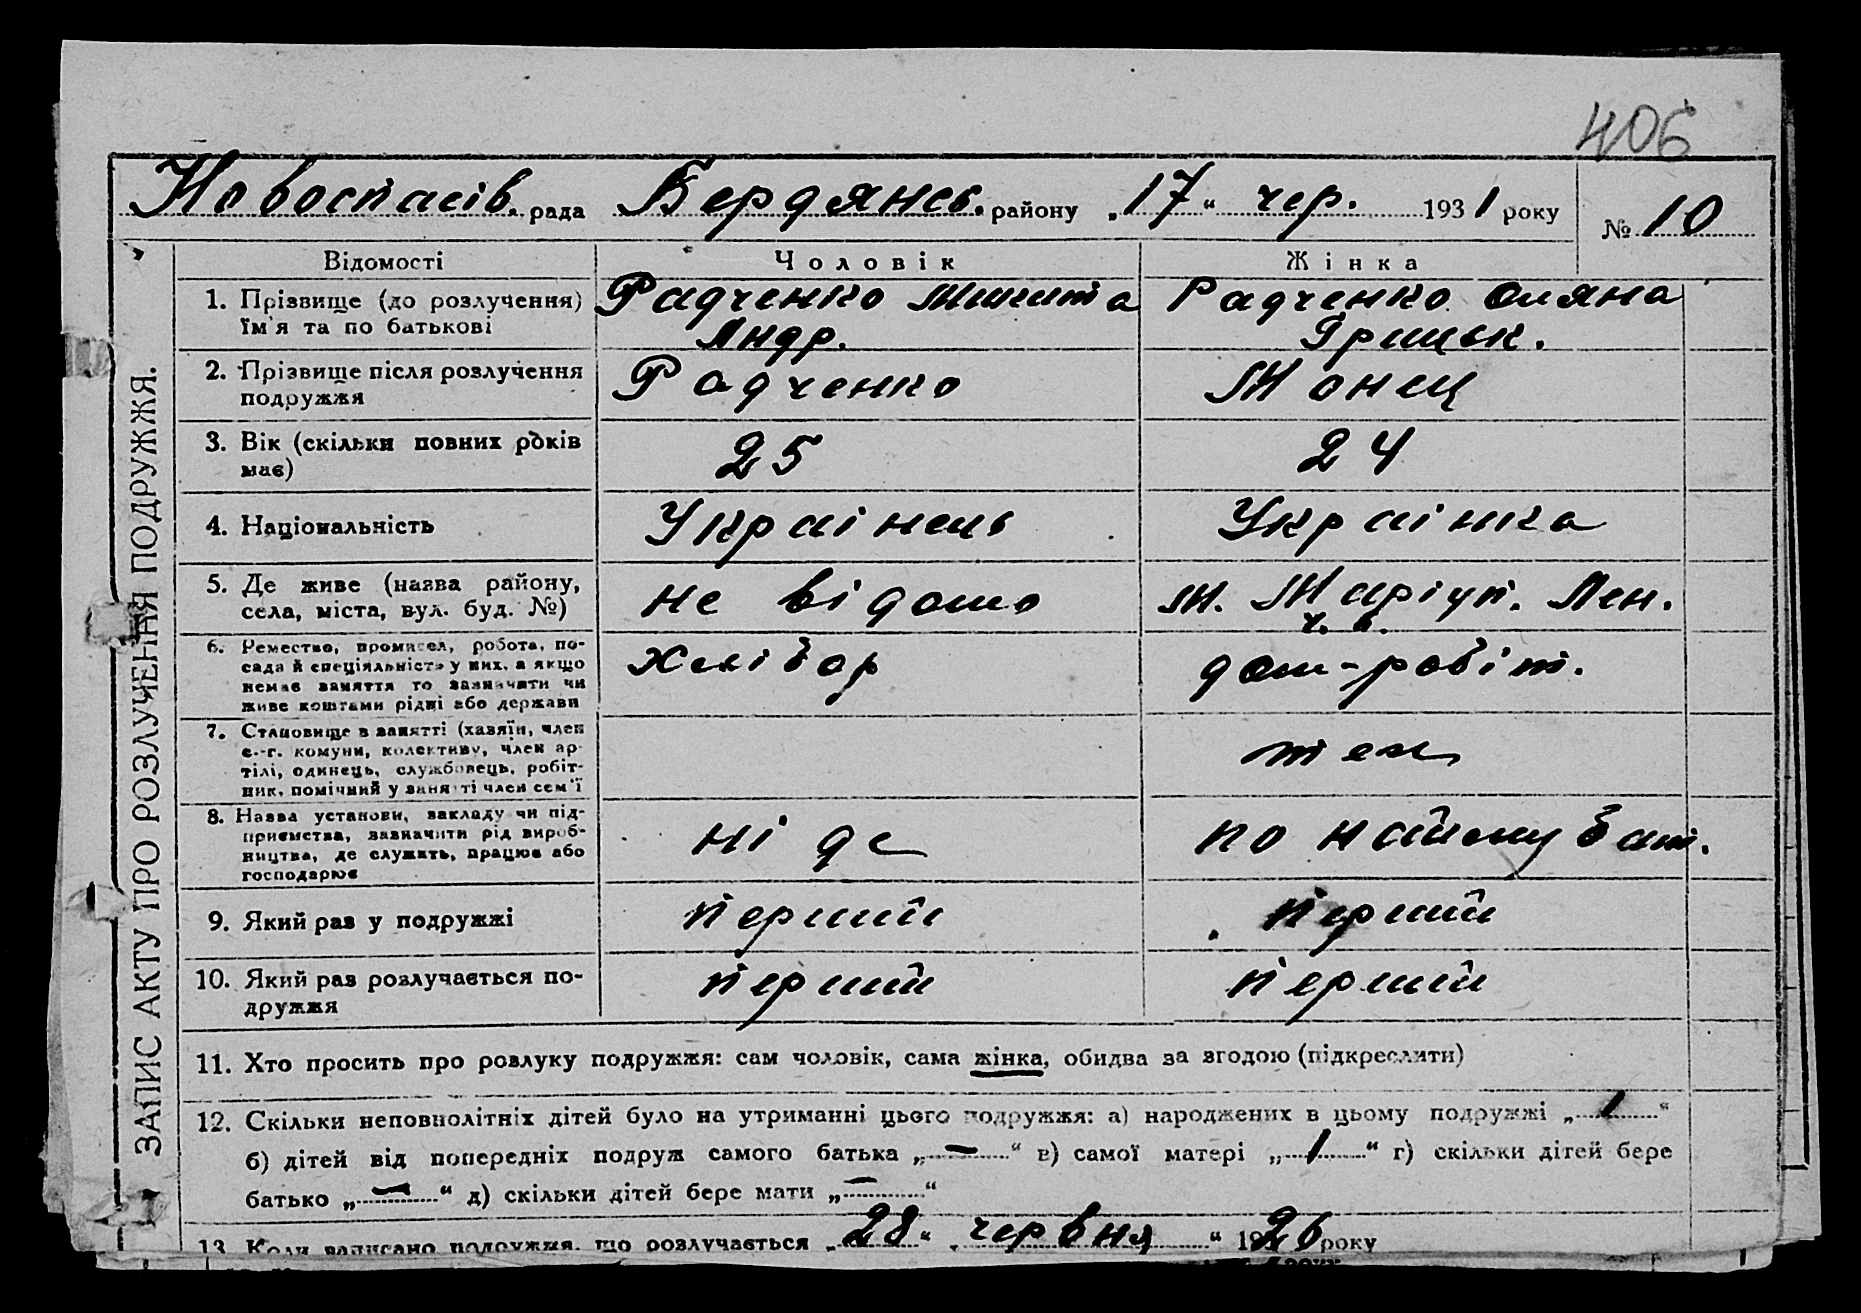 406
Новоспасів. рада Бердянсь. району „17“ чер. 1931 року № 10
ЗАПИС АКТУ ПРО РОЗЛУЧЕННЯ ПОДРУЖЖЯ.
Відомості Чоловік Жінка
1. Прізвище (до розлучення) Радченко Микита Радченко Оляна
їм'я та по батькові Андр. Грицьк.
2. Прізвище після розлучення Радченко Монец
подружжя
3. Вік (скільки повних років 25 24
має)
4. Національність Українець Українка
5. Де живе (назва району, не відомо м. Маріуп. Лен.
села, міста, вул. буд. №)
6. Ремество, промисел, робота, по- Хлібор дом-робіт.
сада й спеціяльність у них, а якщо
немає заняття то зазначити чи
живе коштами рідні або держави
7. Становище в занятті (хазяїн, член
с.-г. комуни, колективу, член ар-
тілі, одинець, службовець, робіт-
ник, помічний у занятті член сем'ї
8. Назва установи, закладу чи під- ні де по найому бат.
приємства, зазначити рід вироб-
ництва, де служить, працює або
господарює
9. Який раз у подружжі перший перший
10. Який раз розлучається по- перший перший
дружжя
11. Хто просить про розлуку подружжя: сам чоловік, сама жінка, обидва за згодою (підкреслити)
12. Скільки неповнолітніх дітей було на утриманні цього подружжя: а) народжених в цьому подружжі „1“
б) дітей від попередніх подруж самого батька „—“ в) самої матері „1“ г) скільки дітей бере
батько „—“ д) скільки дітей бере мати „—“
13. Коли записано подружжя, що розлучається „28“ „червня“ 1926 року